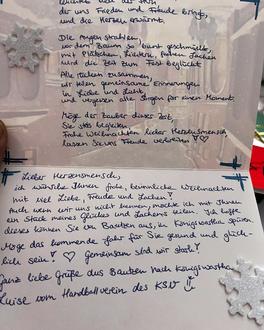 der uns Frieden und Freude bringt,
und die Herzen erwärmt.
Die Augen strahlen,
vor dem Baum so bunt geschmückt,
mit Plätzchen, Liedern, frohem Lachen
wird die Zeit zum Fest beglückt
Alle rücken zusammen,
wir teilen gemeinsame Erinnerungen
in Liebe und Licht
und vergessen alle Sorgen für einen Moment.
Möge der Zauber dieser Zeit,
Sie stets begleiten.
Frohe Weihnachten lieber Herzensmensch,
lassen Sie uns Freude verbreiten! ♡
Lieber Herzensmensch,
ich wünsche Ihnen frohe, besinnliche Weihnachten
mit viel Liebe, Freude und Lachen!
Auch wenn wir uns nicht kennen, möchte ich mit Ihnen
ein Stück meines Glückes und Lachens teilen. Ich hoffe,
dieses können Sie von Bautzen aus, in Königswartha spüren
Möge das kommende Jahr für Sie gesund und glück-
lich sein! ♡ Gemeinsam sind wir stark!
Ganz liebe Grüße aus Bautzen nach Königswartha
Luise vom Handballverein des KSV